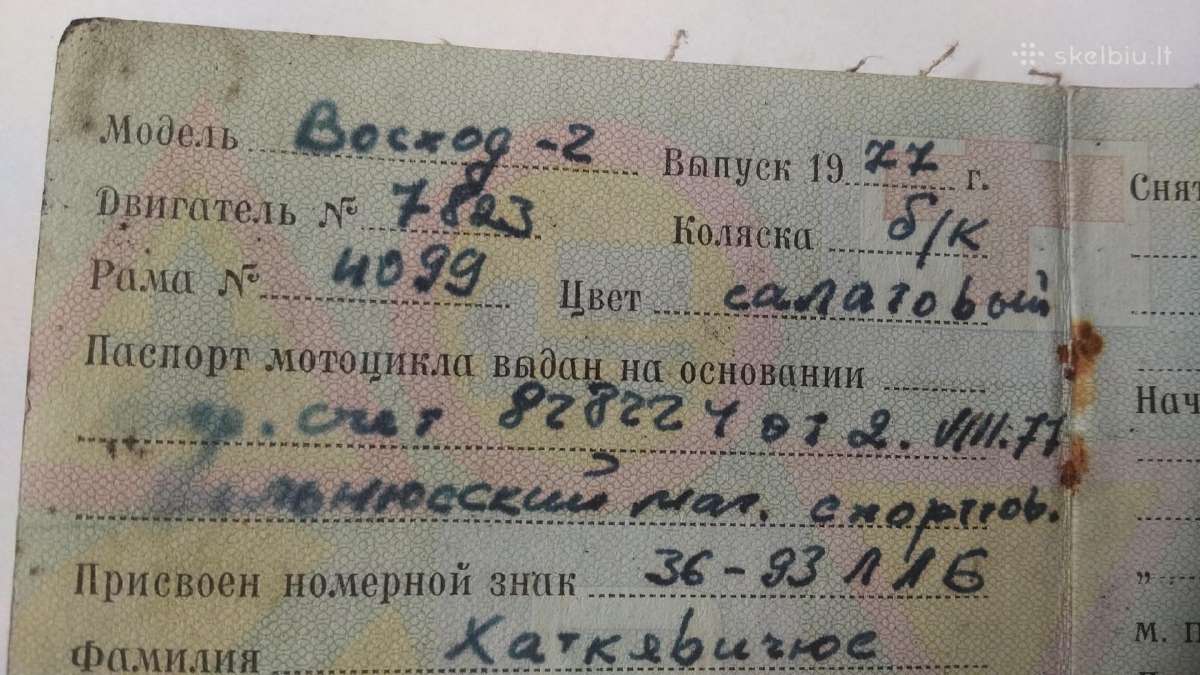 skelbiu.lt
Модель Восход-2 Выпуск 1977 г.
Двигатель № 7823 Коляска б/к
Рама № 4099 Цвет салатовый
Паспорт мотоцикла выдан на основании
счет 828224 от 2.VIII.77
Вильнюсский маг. спорттов.
Присвоен номерной знак 36-93 ЛЛБ
Фамилия Хаткявичюс
Снят
Нач
„
м. п